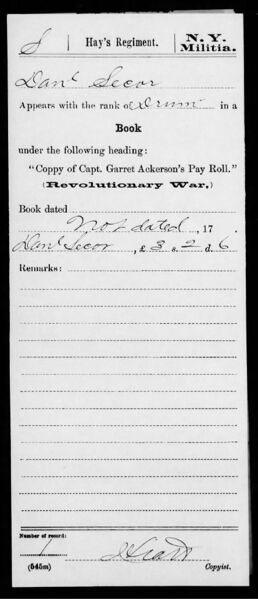 S | Hay's Regiment. | N. Y. Militia.
Danl Secor
Appears with the rank of Drum in a
Book
under the following heading:
"Coppy of Capt. Garret Ackerson's Pay Roll."
(Revolutionary War.)
Book dated
Not dated, 17 .
Danl Secor, £ 3 s. 2 d. 6
Remarks:
Number of record:
1
(545m) Copyist.